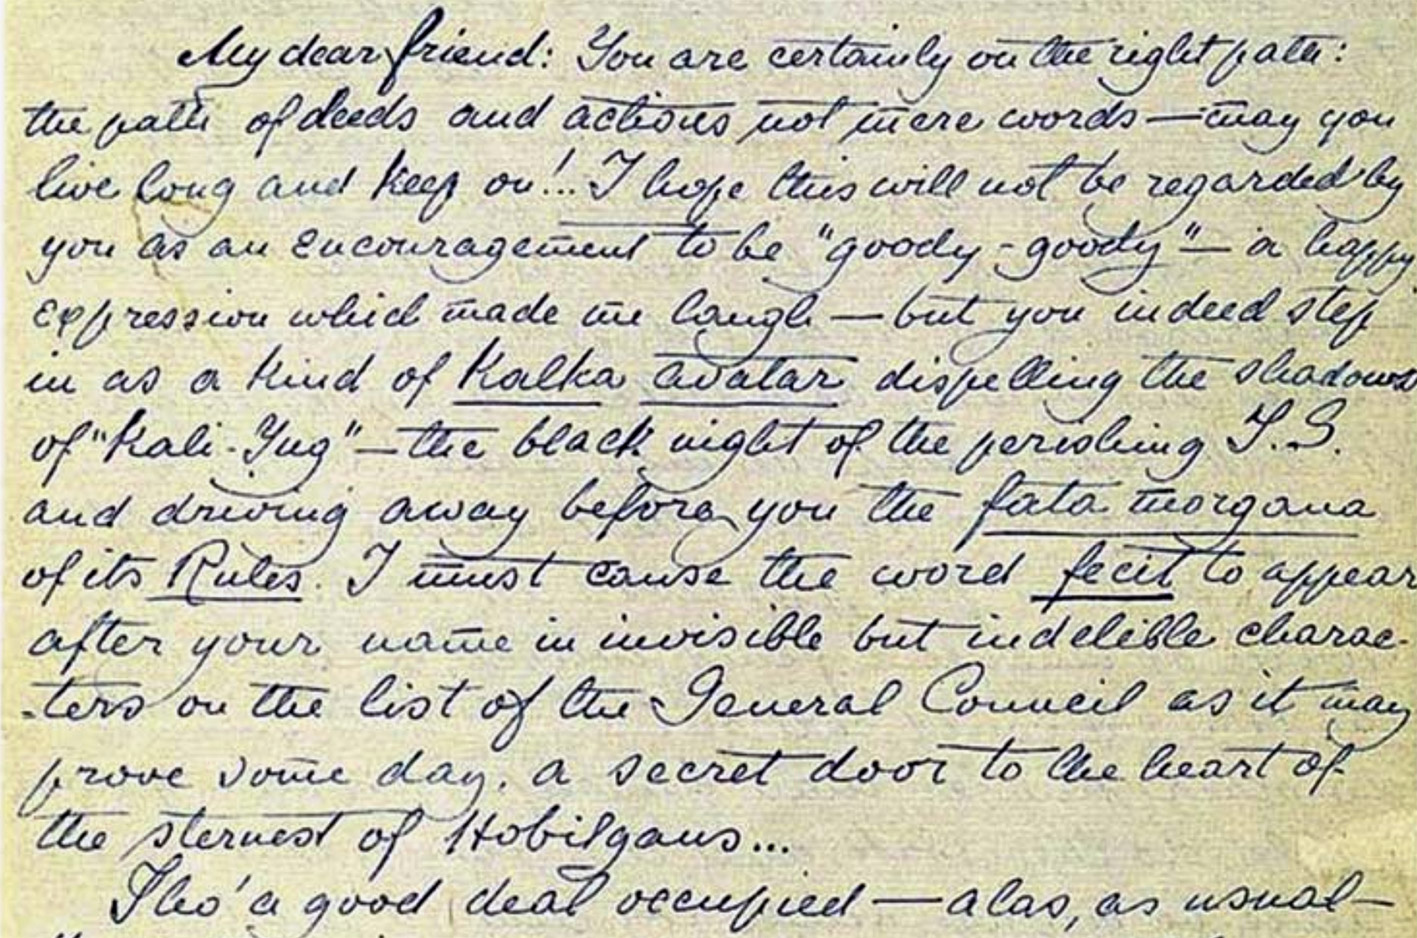 My dear friend: You are certainly on the right path:
the path of deeds and actions not mere words — may you
live long and keep on!.. I hope this will not be regarded by
you as an encouragement to be "goody-goody" — a happy
expression which made me laugh — but you indeed step
in as a kind of Kalka avatar dispelling the shadows
of "Kali-Yug" — the black night of the perishing T.S.
and driving away before you the fata morgana
of its Rules. I must cause the word fecit to appear
after your name in invisible but indelible charac-
-ters on the list of the General Council as it may
prove some day, a secret door to the heart of
the sternest of Hobilgans...
Tho' a good deal occupied — alas, as usual —